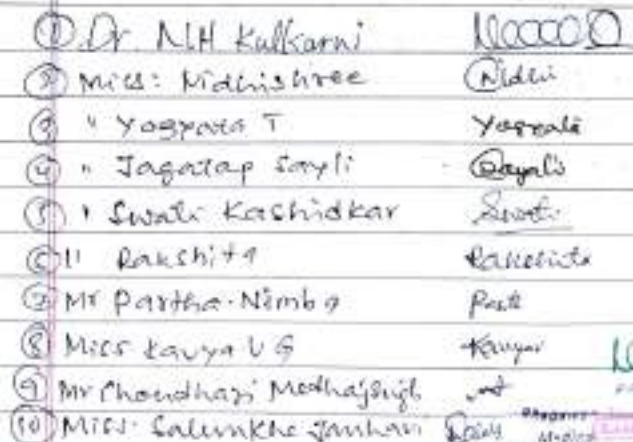 ① Dr. NH Kulkarni
② Miss: Nidhishree Nidhi
③ " Yogyata T Yogyata
④ " Jagatap Sayli Sayali
⑤ " Swati Kashidkar Swati
⑥ " Rakshita Rakshita
⑦ Mr Partha Nimba Parth
⑧ Miss Kavya U G
⑨ Mr Choudhari
⑩ Miss. Salunkhe Janhavi